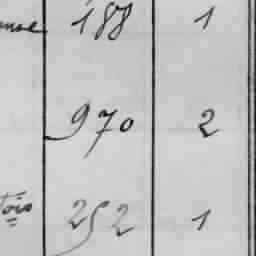 188 1
970 2
tois 252 1